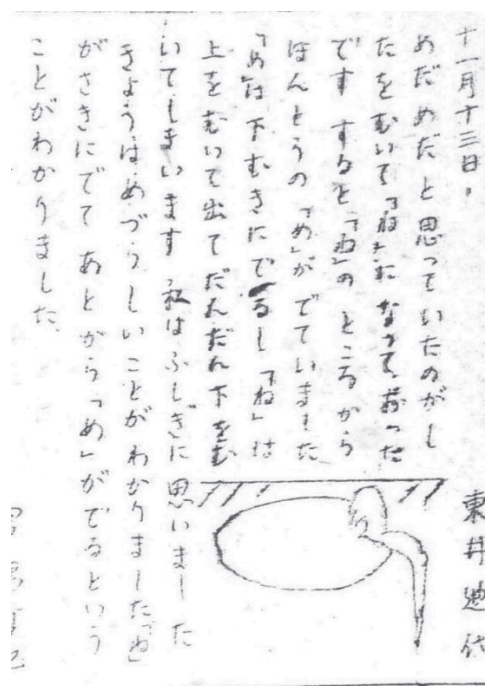 十一月十三日、 東井迪代
めだめだと思っていたのがし
たをむいて「ね」になって居った
です すると「ね」のところから
ほんとうの「め」がでていました
「め」は下むきにでるし「ね」は
上をむいて出てだんだん下をむ
いてしまいます 私はふしぎに思いました
きょうはめづらしいことがわかりました「ね」
がさきにでて あとから「め」がでるという
ことがわかりました、